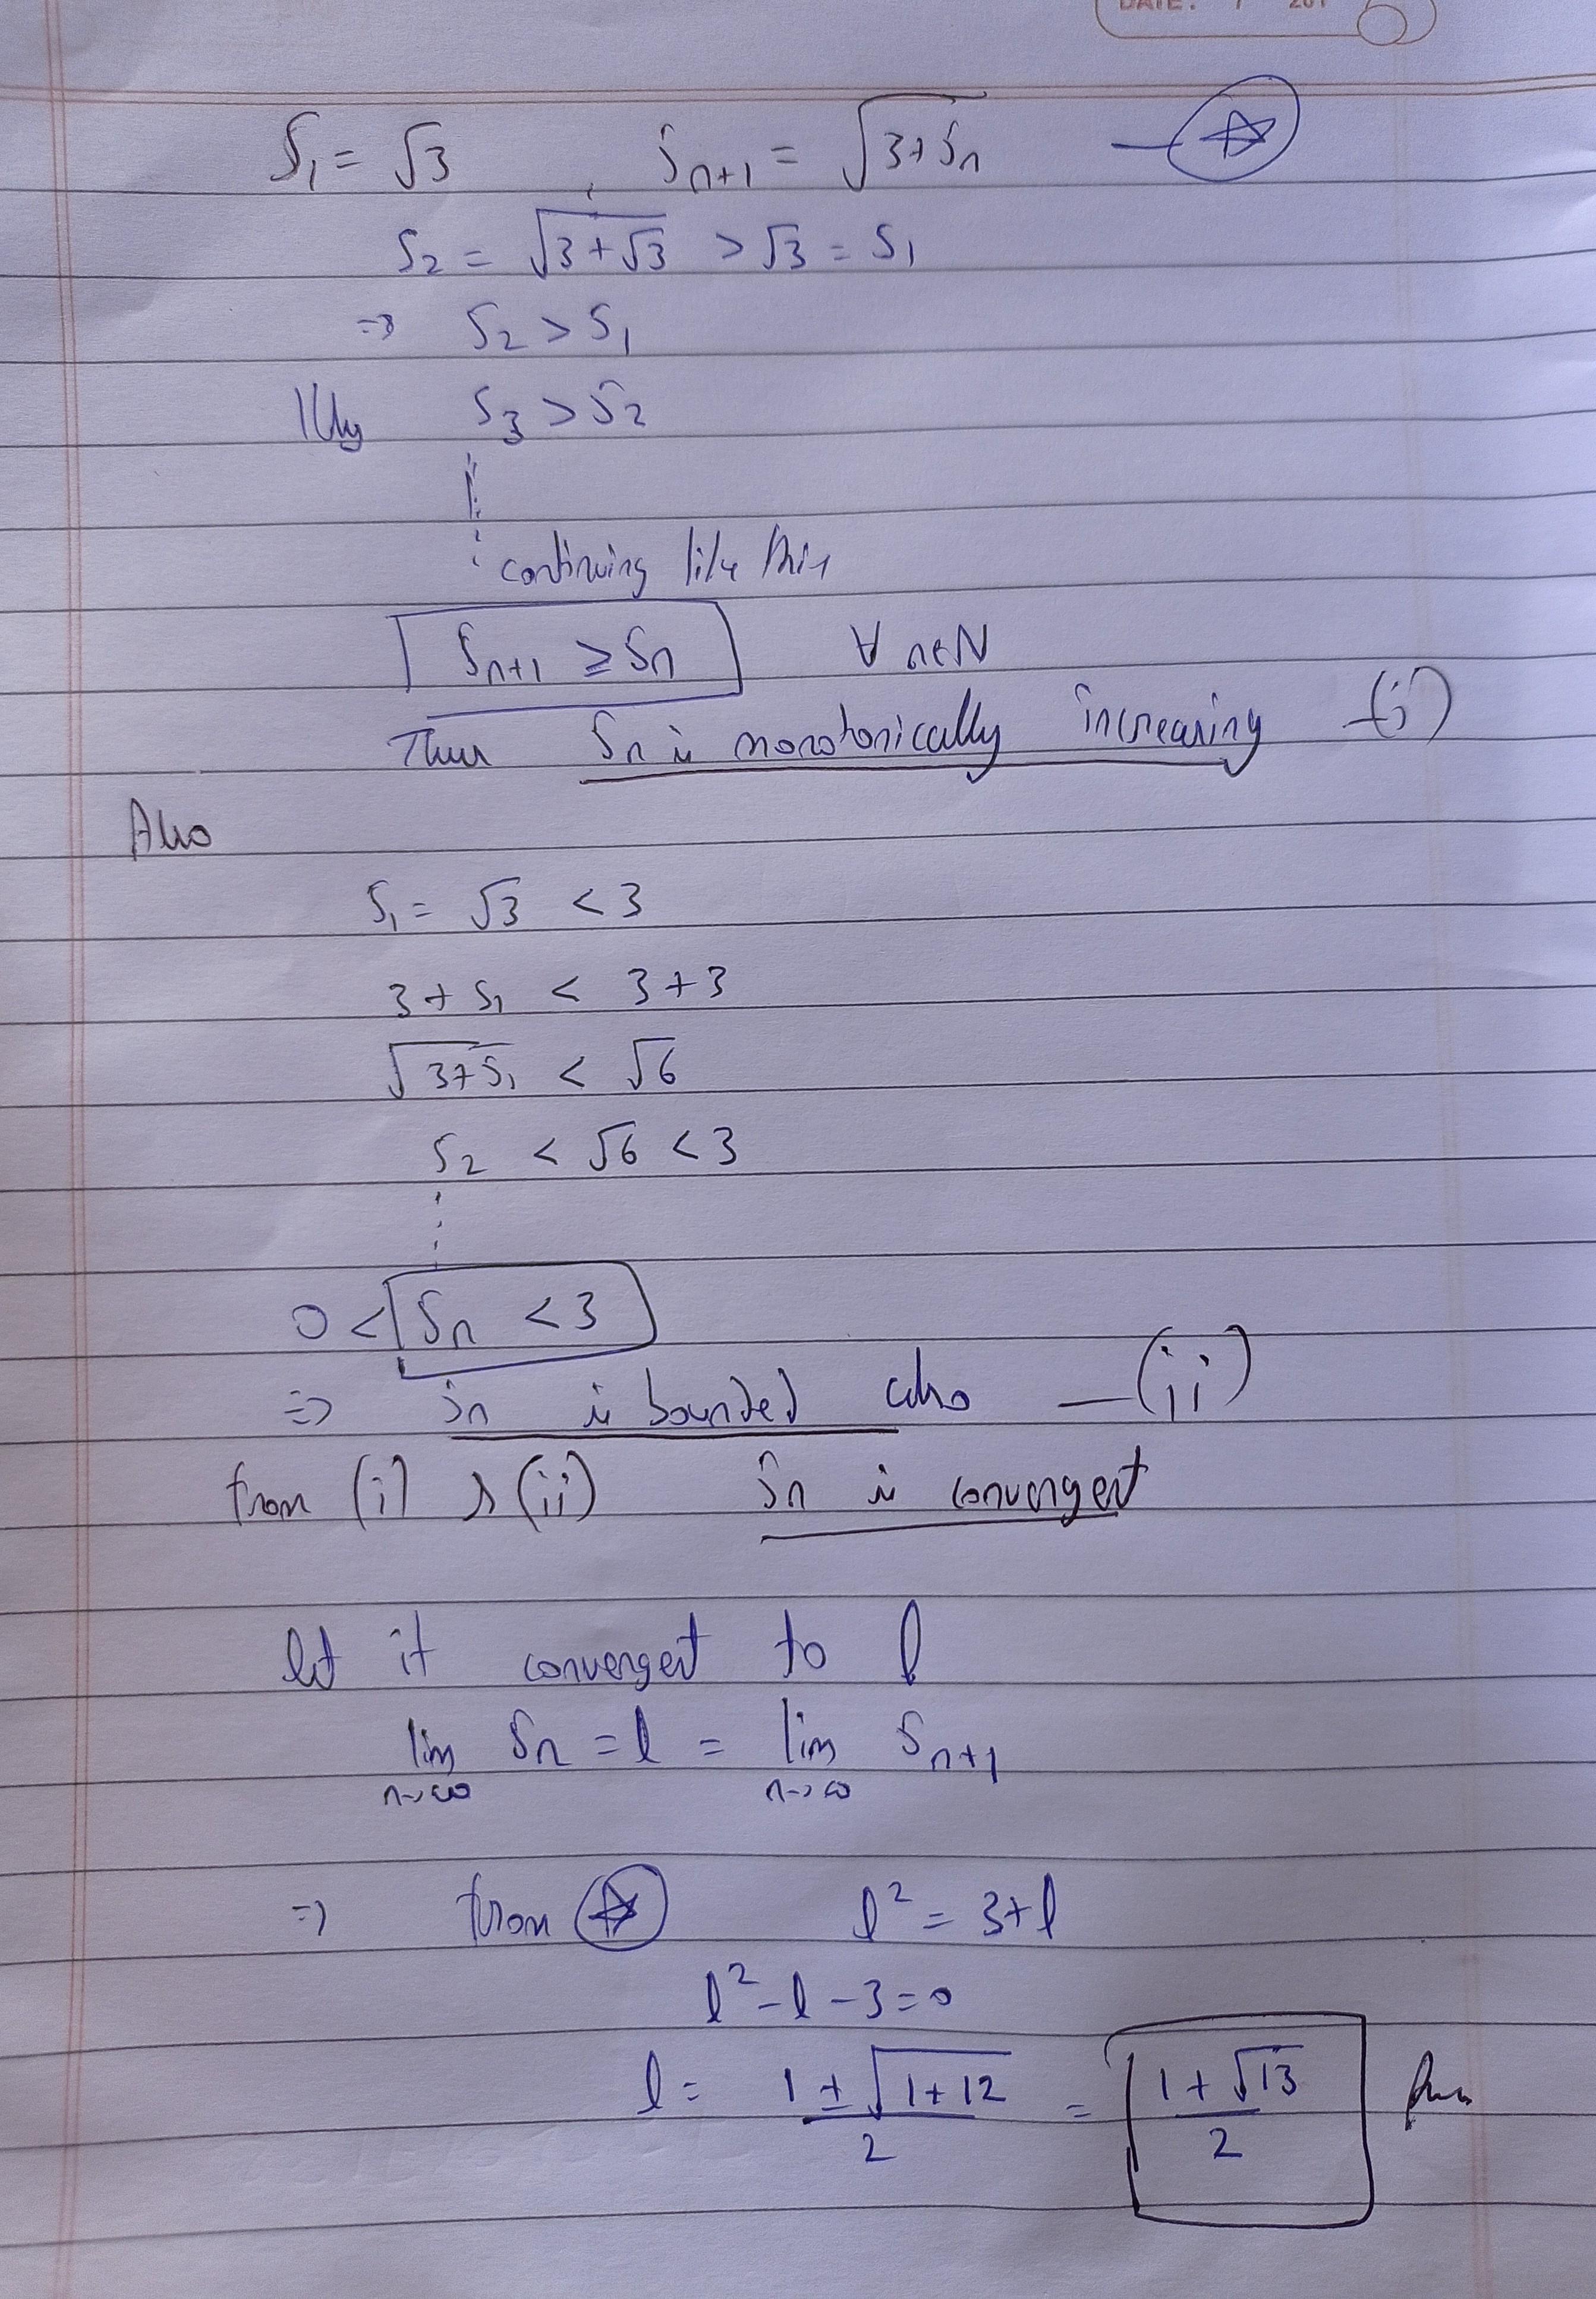 DATE: / 201
S₁ = √3 , Sn+1 = √(3+Sn) — ☆
S₂ = √(3+√3) > √3 = S₁
⇒ S₂ > S₁
|||ly S₃ > S₂
continuing like this
Sn+1 ≥ Sn ∀ n∈N
Thus Sn is monotonically increasing —(i)
Also
S₁ = √3 < 3
3 + S₁ < 3+3
√(3+S₁) < √6
S₂ < √6 < 3
0 < Sn < 3
⇒ Sn is bounded also —(ii)
from (i) & (ii) Sn is convergent
let it convergent to l
lim n→∞ Sn = l = lim n→∞ Sn+1
⇒ from ☆ l² = 3+l
l² - l - 3 = 0
l = (1 ± √(1+12))/2 = (1+√13)/2 Ans